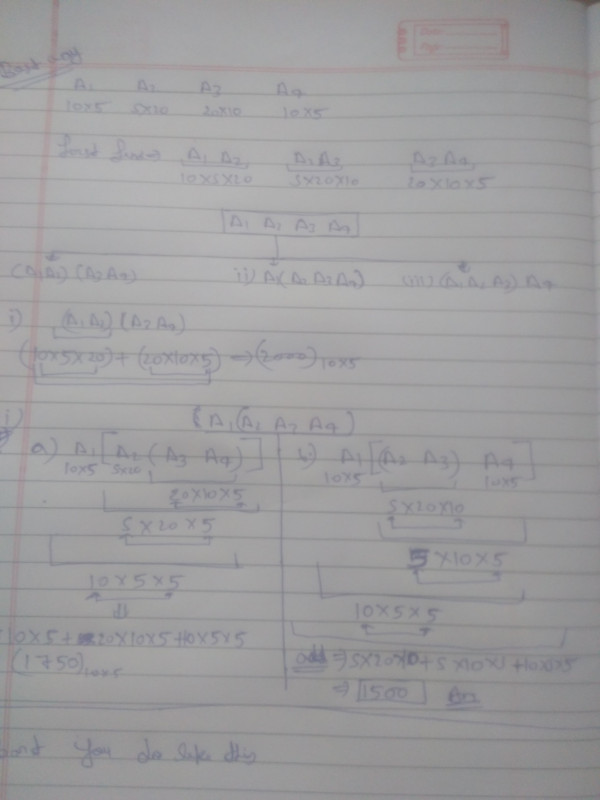 A1 A2 A3 A4
10x5 5x20 20x10 10x5
A1 A2 A2 A3 A3 A4
10x5x20 5x20x10 20x10x5
A1 A2 A3 A4
(A1 A2) (A3 A4) ii) A1(A2 A3 A4) iii) (A1 A2 A3) A4
i) (A1 A2) (A3 A4)
(10x5x20) + (20x10x5) ⇒ (2000) 10x5
(A1(A2 A3 A4)
a) A1 [A2 (A3 A4)]
10x5 5x20
20x10x5
5x20x5
10x5x5
⇓
0x5 + 20x10x5 + 10x5x5
(1750) 10x5
b) A1 [(A2 A3) A4]
10x5 10x5
5x20x10
5x10x5
10x5x5
add ⇒ 5x20x10 + 5x10x5 + 10x5x5
⇒ 1500 Ans
you do like this